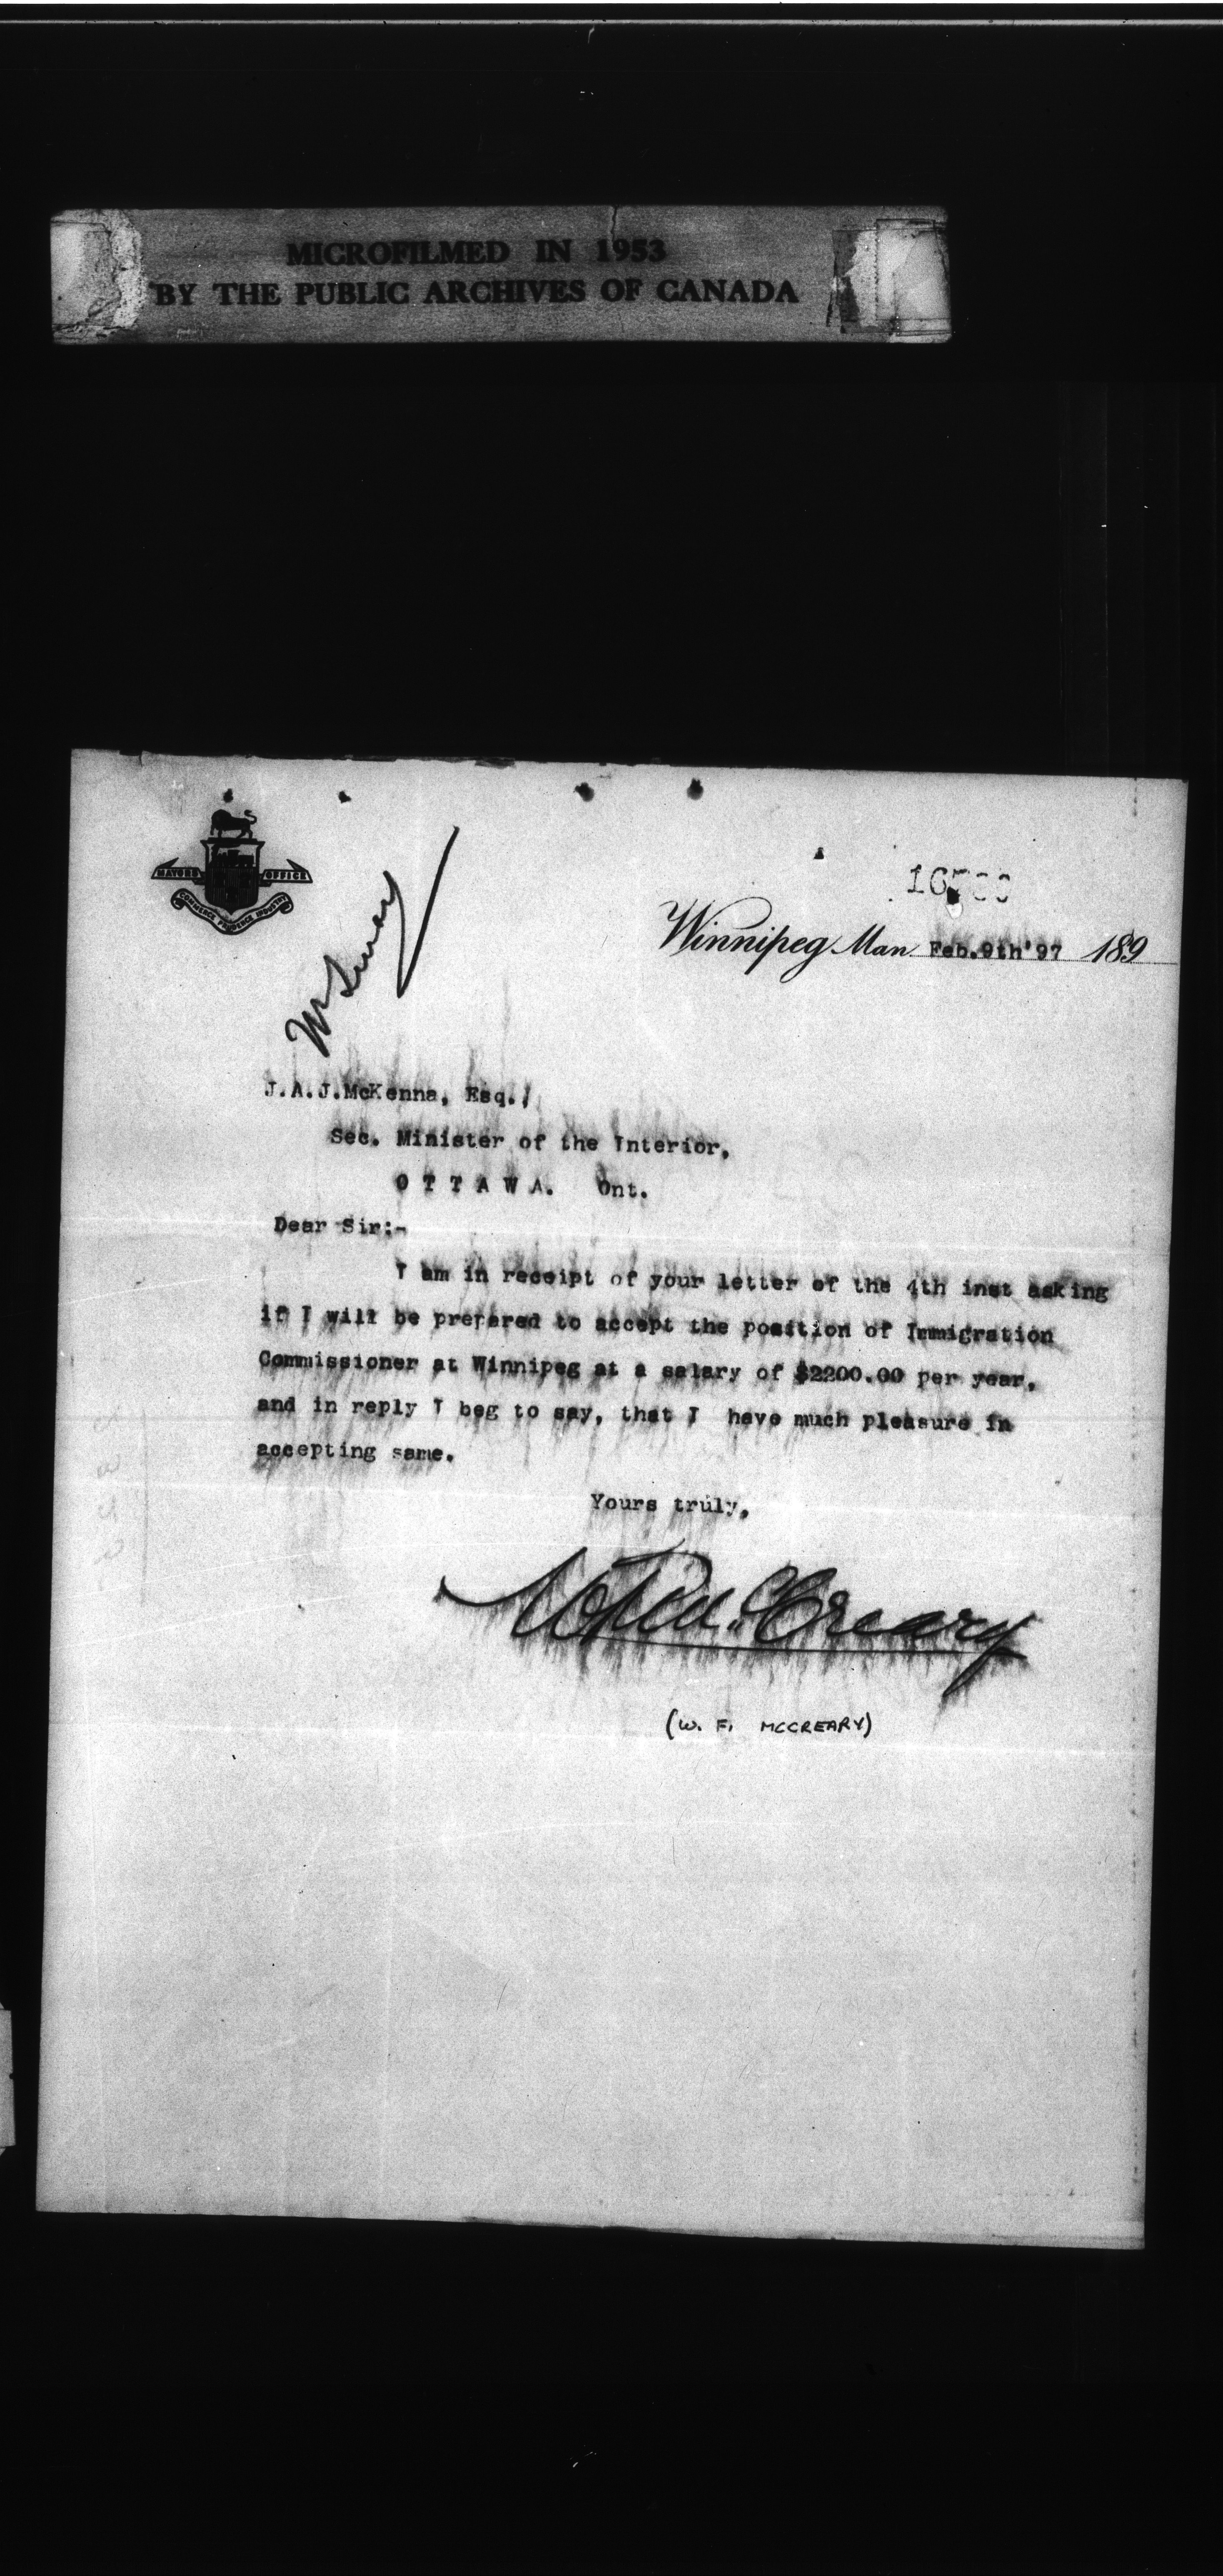 MICROFILMED IN 1953
BY THE PUBLIC ARCHIVES OF CANADA
MAYORS OFFICE
COMMERCE PRUDENCE INDUSTRY
Winnipeg Man. Feb.9th'97 189
J.A.J.McKenna, Esq.,
Sec. Minister of the Interior,
O T T A W A. Ont.
Dear Sir:-
I am in receipt of your letter of the 4th inst asking
if I will be prepared to accept the position of Immigration
Commissioner at Winnipeg at a salary of $2200.00 per year,
and in reply I beg to say, that I have much pleasure in
accepting same.
Yours truly,
W F McCreary
(W. F. MCCREARY)